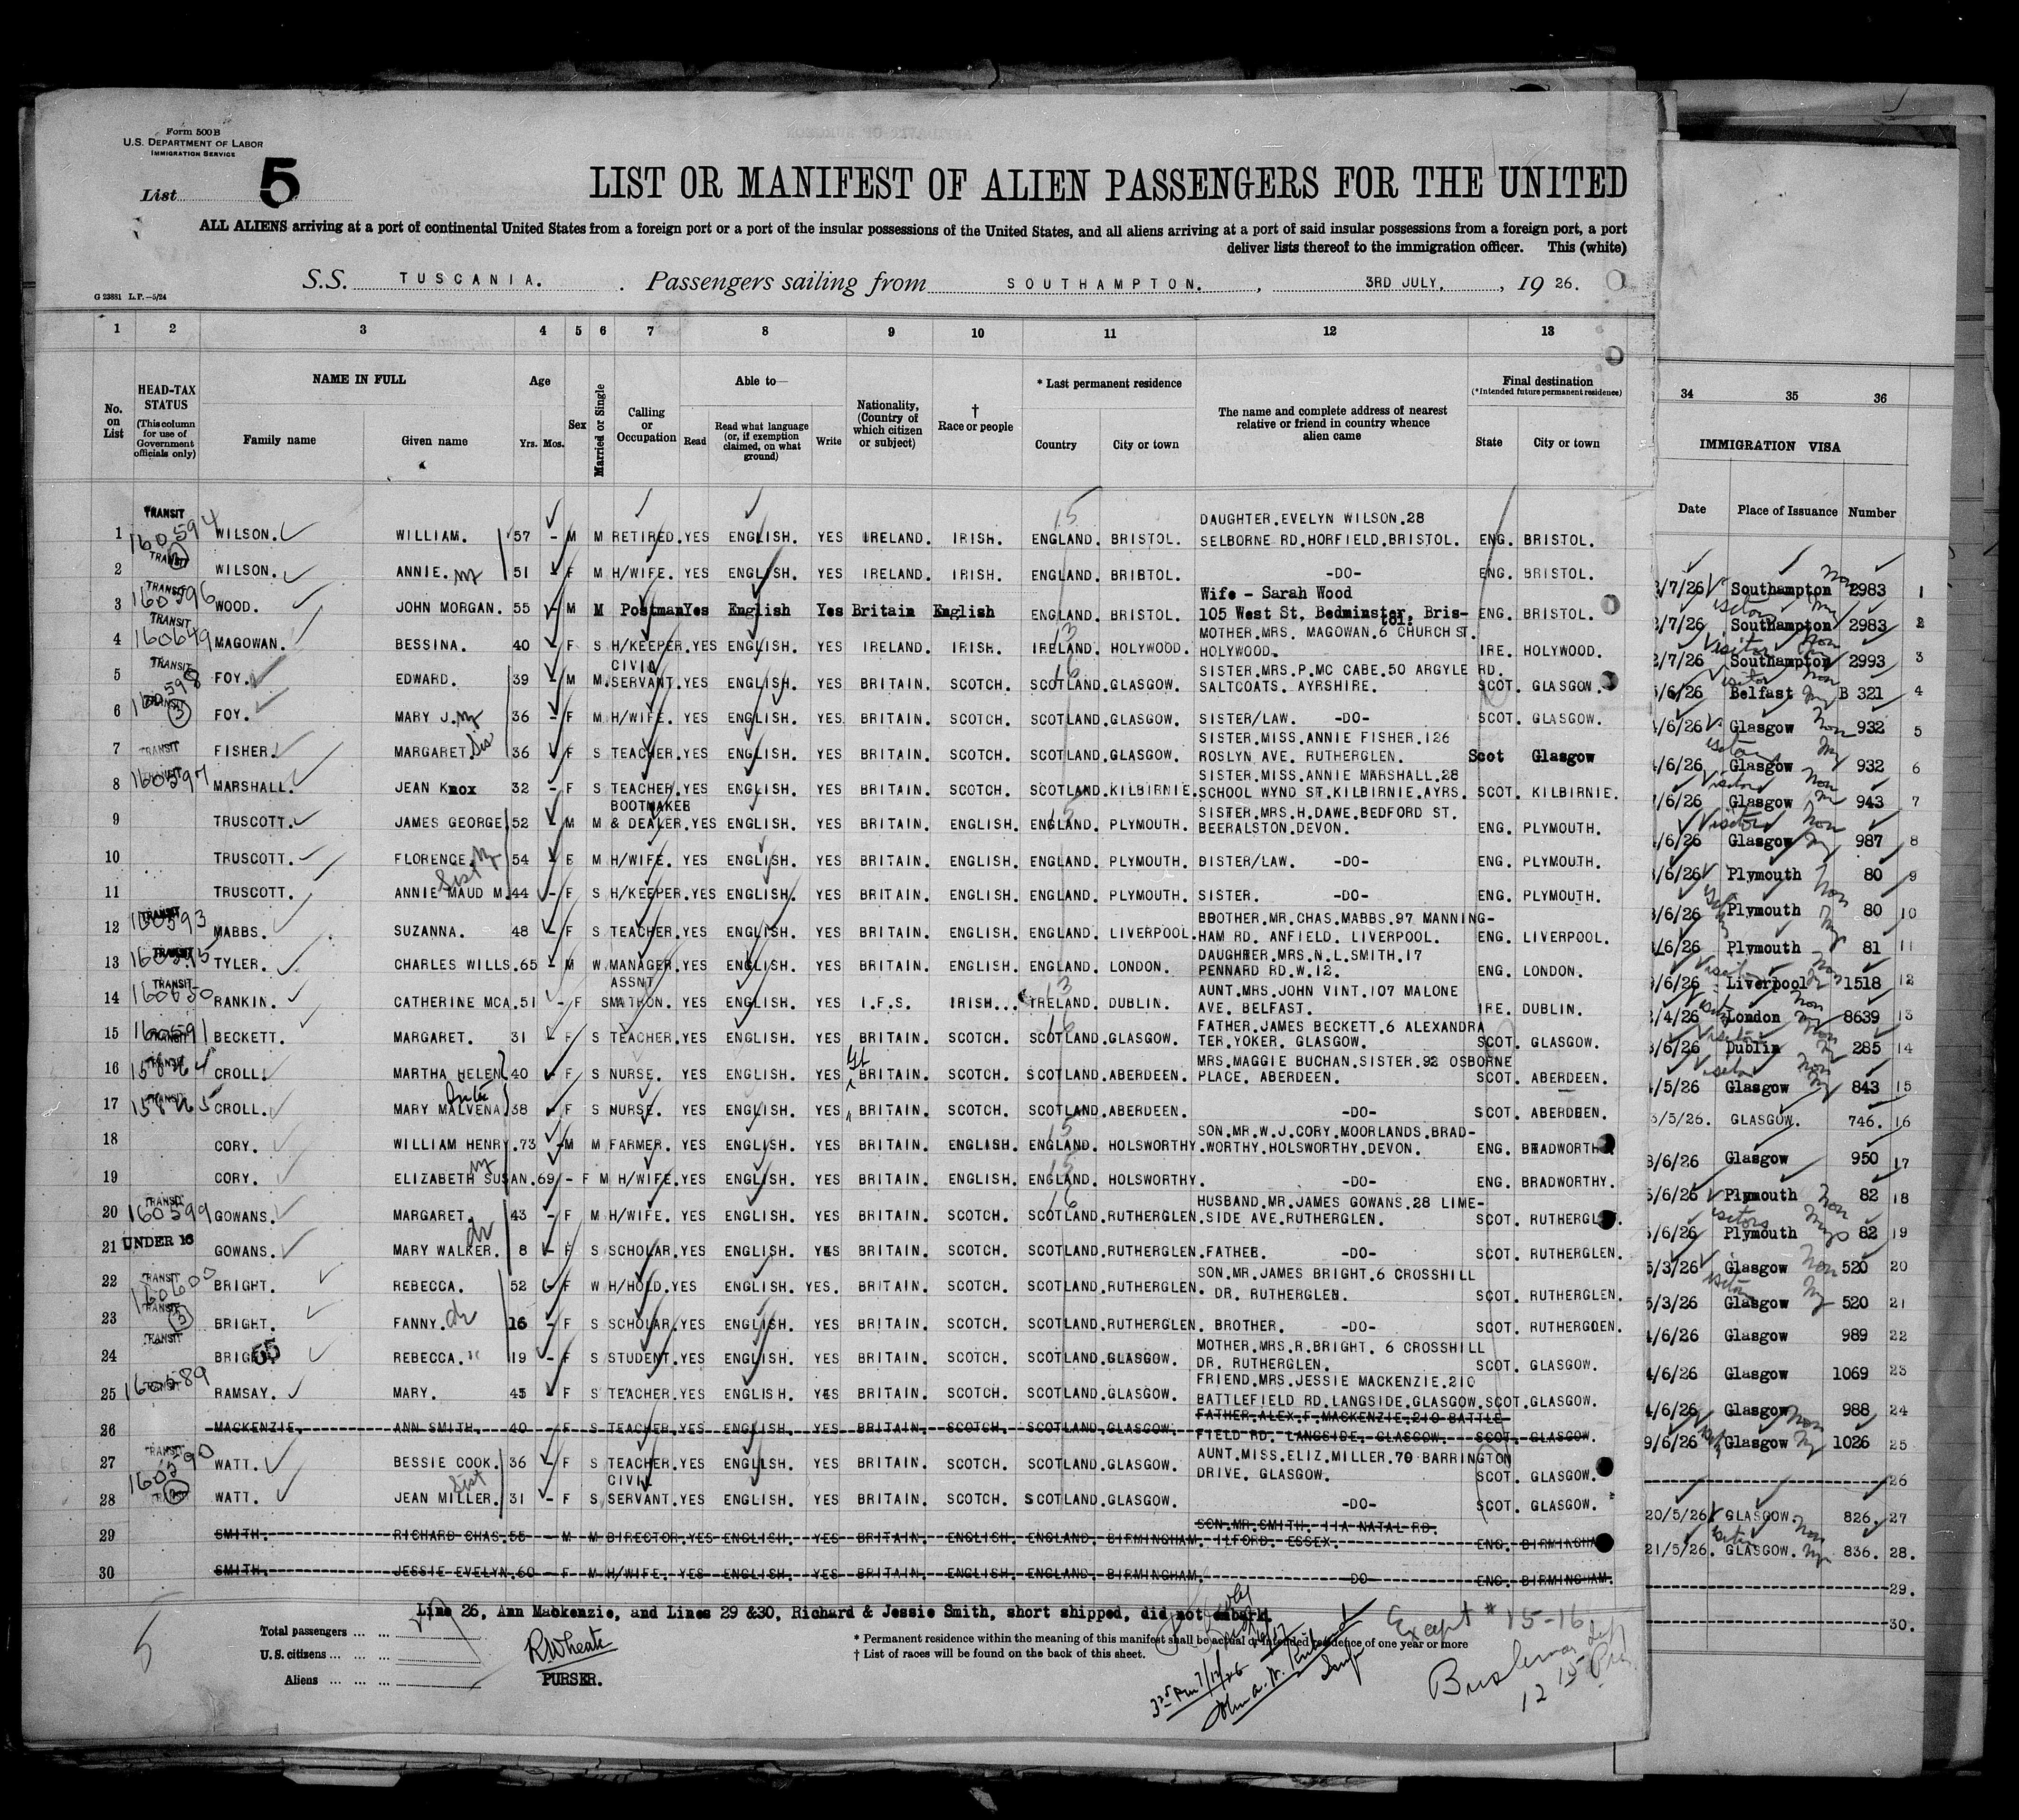 Form 500 B
U.S. DEPARTMENT OF LABOR
IMMIGRATION SERVICE
List 5
LIST OR MANIFEST OF ALIEN PASSENGERS FOR THE UNITED
ALL ALIENS arriving at a port of continental United States from a foreign port or a port of the insular possessions of the United States, and all aliens arriving at a port of said insular possessions from a foreign port, a port
deliver lists thereof to the immigration officer. This (white)
S.S. TUSCANIA. Passengers sailing from SOUTHAMPTON. , 3RD JULY. , 19 26.
G 23881 L.P.—5/24
1 2 3 4 5 6 7 8 9 10 11 12 13
No. on List
HEAD-TAX STATUS
(This column for use of Government officials only)
NAME IN FULL
Family name Given name
Age
Yrs. Mos.
Sex
Married or Single
Calling or Occupation
Able to—
Read
Read what language (or, if exemption claimed, on what ground)
Write
Nationality, (Country of which citizen or subject)
† Race or people
* Last permanent residence
Country City or town
The name and complete address of nearest relative or friend in country whence alien came
Final destination
(*Intended future permanent residence)
State City or town
34 35 36
IMMIGRATION VISA
Date Place of Issuance Number
TRANSIT 160594
DAUGHTER.EVELYN WILSON.28
1 WILSON. WILLIAM. 57 - M M RETIRED. YES ENGLISH. YES IRELAND. IRISH. ENGLAND. BRISTOL. SELBORNE RD.HORFIELD.BRISTOL. ENG. BRISTOL.
2 TRANSIT WILSON. ANNIE. 51 - F M H/WIFE. YES ENGLISH. YES IRELAND. IRISH. ENGLAND. BRISTOL. -DO- ENG. BRISTOL.
TRANSIT 160596 Wife - Sarah Wood
3 WOOD. JOHN MORGAN. 55 - M M Postman Yes English Yes Britain English ENGLAND. BRISTOL. 105 West St, Bedminster, Bris- tol. ENG. BRISTOL.
TRANSIT 160649 MOTHER.MRS. MAGOWAN.6 CHURCH ST.
4 MAGOWAN. BESSINA. 40 - F S H/KEEPER. YES ENGLISH. YES IRELAND. IRISH. IRELAND. HOLYWOOD. HOLYWOOD. IRE. HOLYWOOD.
TRANSIT CIVIL SISTER.MRS.P.MC CABE.50 ARGYLE RD.
5 FOY. EDWARD. 39 - M M. SERVANT. YES ENGLISH. YES BRITAIN. SCOTCH. SCOTLAND.GLASGOW. SALTCOATS. AYRSHIRE. SCOT. GLASGOW.
160598
6 FOY. MARY J. 36 - F M H/WIFE. YES ENGLISH. YES BRITAIN. SCOTCH. SCOTLAND.GLASGOW. SISTER/LAW. -DO- SCOT. GLASGOW.
SISTER.MISS.ANNIE FISHER.126
7 TRANSIT FISHER. MARGARET. Sis 36 F S TEACHER. YES ENGLISH. YES BRITAIN. SCOTCH. SCOTLAND.GLASGOW. ROSLYN AVE. RUTHERGLEN. Scot Glasgow
160597 SISTER.MISS.ANNIE MARSHALL.28
8 MARSHALL. JEAN Knox 32 - F S TEACHER. YES ENGLISH. YES BRITAIN. SCOTCH. SCOTLAND.KILBIRNIE. SCHOOL WYND ST.KILBIRNIE.AYRS. SCOT. KILBIRNIE.
BOOTMAKER SISTER.MRS.H.DAWE.BEDFORD ST.
9 TRUSCOTT. JAMES GEORGE 52 - M M & DEALER. YES ENGLISH. YES BRITAIN. ENGLISH. ENGLAND. PLYMOUTH. BEERALSTON.DEVON. ENG. PLYMOUTH.
10 TRUSCOTT. FLORENCE. 54 - F M H/WIFE. YES ENGLISH. YES BRITAIN. ENGLISH. ENGLAND. PLYMOUTH. BISTER/LAW. -DO- ENG. PLYMOUTH.
11 TRUSCOTT. Sist ANNIE MAUD M. 44 - F S H/KEEPER. YES ENGLISH. YES BRITAIN. ENGLISH. ENGLAND. PLYMOUTH. SISTER. -DO- ENG. PLYMOUTH.
TRANSIT 160593 BBOTHER.MR.CHAS.MABBS.97 MANNING-
12 MABBS. SUZANNA. 48 - F S TEACHER. YES ENGLISH. YES BRITAIN. ENGLISH. ENGLAND. LIVERPOOL. HAM RD. ANFIELD. LIVERPOOL. ENG. LIVERPOOL.
TRANSIT 160595 DAUGHTER.MRS.N.L.SMITH.17
13 TYLER. CHARLES WILLS. 65 - M W. MANAGER. YES ENGLISH. YES BRITAIN. ENGLISH. ENGLAND. LONDON. PENNARD RD.W.12. ENG. LONDON.
TRANSIT 160650 ASSNT AUNT.MRS.JOHN VINT.107 MALONE
14 RANKIN. CATHERINE MCA. 51 - F S MATRON. YES ENGLISH. YES I.F.S. IRISH... IRELAND. DUBLIN. AVE. BELFAST. IRE. DUBLIN.
160591 FATHER.JAMES BECKETT.6 ALEXANDRA
15 BECKETT. MARGARET. 31 F S TEACHER YES ENGLISH. YES BRITAIN. SCOTCH. SCOTLAND.GLASGOW. TER.YOKER. GLASGOW. SCOT. GLASGOW.
MRS.MAGGIE BUCHAN.SISTER.92 OSBORNE
16 CROLL. MARTHA HELEN 40 F S NURSE. YES ENGLISH. YES BRITAIN. SCOTCH. SCOTLAND.ABERDEEN. PLACE. ABERDEEN. SCOT. ABERDEEN.
17 CROLL. MARY MALVENA. 38 - F S NURSE. YES ENGLISH. YES BRITAIN. SCOTCH. SCOTLAND.ABERDEEN. -DO- SCOT. ABERDEEN.
SON.MR.W.J.CORY.MOORLANDS.BRAD-
18 CORY. WILLIAM HENRY. 73 - M M FARMER. YES ENGLISH. YES BRITAIN. ENGLISH. ENGLAND. HOLSWORTHY. WORTHY.HOLSWORTHY.DEVON. ENG. BRADWORTH
19 CORY. ELIZABETH SUSAN. 69 - F M H/WIFE. YES ENGLISH. YES BRITAIN. ENGLISH. ENGLAND. HOLSWORTHY. -DO- ENG. BRADWORTHY.
TRANSIT 160599 HUSBAND.MR.JAMES GOWANS.28 LIME-
20 GOWANS. MARGARET. 43 - F M H/WIFE. YES ENGLISH. YES BRITAIN. SCOTCH. SCOTLAND.RUTHERGLEN. SIDE AVE.RUTHERGLEN. SCOT. RUTHERGL
21 UNDER 16 GOWANS. MARY WALKER. dr 8 - F S SCHOLAR. YES ENGLISH. YES BRITAIN. SCOTCH. SCOTLAND.RUTHERGLEN. FATHER. -DO- SCOT. RUTHERGLEN.
SON.MR.JAMES BRIGHT.6 CROSSHILL
22 TRANSIT BRIGHT. REBECCA. 52 F W H/HOLD. YES ENGLISH. YES. BRITAIN. SCOTCH. SCOTLAND.RUTHERGLEN. DR. RUTHERGLEN. SCOT. RUTHERGLEN.
160600
23 TRANSIT BRIGHT. FANNY. dr 16 - F S SCHOLAR. YES ENGLISH. YES BRITAIN. SCOTCH. SCOTLAND.RUTHERGLEN. BROTHER. -DO- SCOT. RUTHERGLEN.
TRANSIT MOTHER.MRS.R.BRIGHT. 6 CROSSHILL
24 BRIGHT. 55 REBECCA. " 19 - F S STUDENT. YES ENGLISH. YES BRITAIN. SCOTCH. SCOTLAND.GLASGOW. DR. RUTHERGLEN. SCOT. GLASGOW.
160589 FRIEND.MRS.JESSIE MACKENZIE.210
25 RAMSAY. MARY. 45 F S TEACHER. YES ENGLISH. YES BRITAIN. SCOTCH. SCOTLAND.GLASGOW. BATTLEFIELD RD.LANGSIDE.GLASGOW. SCOT.GLASGOW.
FATHER.ALEX.F.MACKENZIE.210 BATTLE-
26 MACKENZIE. ANN SMITH. 40 F S TEACHER. YES ENGLISH. YES BRITAIN. SCOTCH. SCOTLAND.GLASGOW. FIELD RD. LANGSIDE. GLASGOW. SCOT. GLASGOW.
TRANSIT 160590 AUNT.MISS.ELIZ.MILLER.70 BARRINGTON
27 WATT. BESSIE COOK. 36 - F S TEACHER. YES ENGLISH. YES BRITAIN. SCOTCH. SCOTLAND.GLASGOW. DRIVE. GLASGOW. SCOT. GLASGOW.
Sist CIVIL
28 WATT. JEAN MILLER. 31 - F S SERVANT. YES ENGLISH. YES BRITAIN. SCOTCH. SCOTLAND.GLASGOW. -DO- SCOT. GLASGOW.
SON.MR.SMITH. 11A NATAL RD.
29 SMITH. RICHARD CHAS. - M M DIRECTOR. YES ENGLISH. YES BRITAIN. ENGLISH. ENGLAND. BIRMINGHAM. ILFORD. ESSEX. ENG. BIRMINGHA
30 SMITH. JESSIE EVELYN. 60 - F M H/WIFE. YES ENGLISH. YES BRITAIN. ENGLISH. ENGLAND. BIRMINGHAM. DO ENG. BIRMINGHAM.
/7/26 Southampton 2983 1
/7/26 Southampton 2983 2
2/7/26 Southampton 2993 3
/6/26 Belfast B 321 4
/6/26 Glasgow 932 5
/6/26 Glasgow 932 6
/6/26 Glasgow 943 7
/6/26 Glasgow 987 8
/6/26 Plymouth 80 9
/6/26 Plymouth 80 10
/6/26 Plymouth 81 11
/6/26 Liverpool 1518 12
/4/26 London 8639 13
/6/26 Dublin 285 14
/5/26 Glasgow 843 15
/5/26. GLASGOW. 746. 16
/6/26 Glasgow 950 17
/6/26 Plymouth 82 18
/6/26 Plymouth 82 19
/3/26 Glasgow 520 20
/3/26 Glasgow 520 21
/6/26 Glasgow 989 22
/6/26 Glasgow 1069 23
/6/26 Glasgow 988 24
9/6/26 Glasgow 1026 25
26
20/5/26 GLASGOW. 826. 27
21/5/26. GLASGOW. 836. 28.
29.
30.
Line 26, Ann Mackenzie, and Lines 29 &30, Richard & Jessie Smith, short shipped, did not embark.
Total passengers
U.S. citizens
Aliens
PURSER.
* Permanent residence within the meaning of this manifest shall be actual or intended residence of one year or more
† List of races will be found on the back of this sheet.
Except # 15-16
5